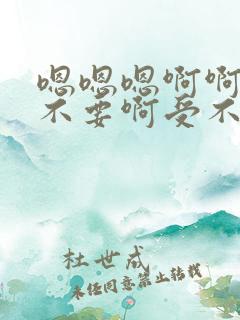 嗯嗯嗯啊啊
不要啊受不
杜世成
未经同意禁止转载